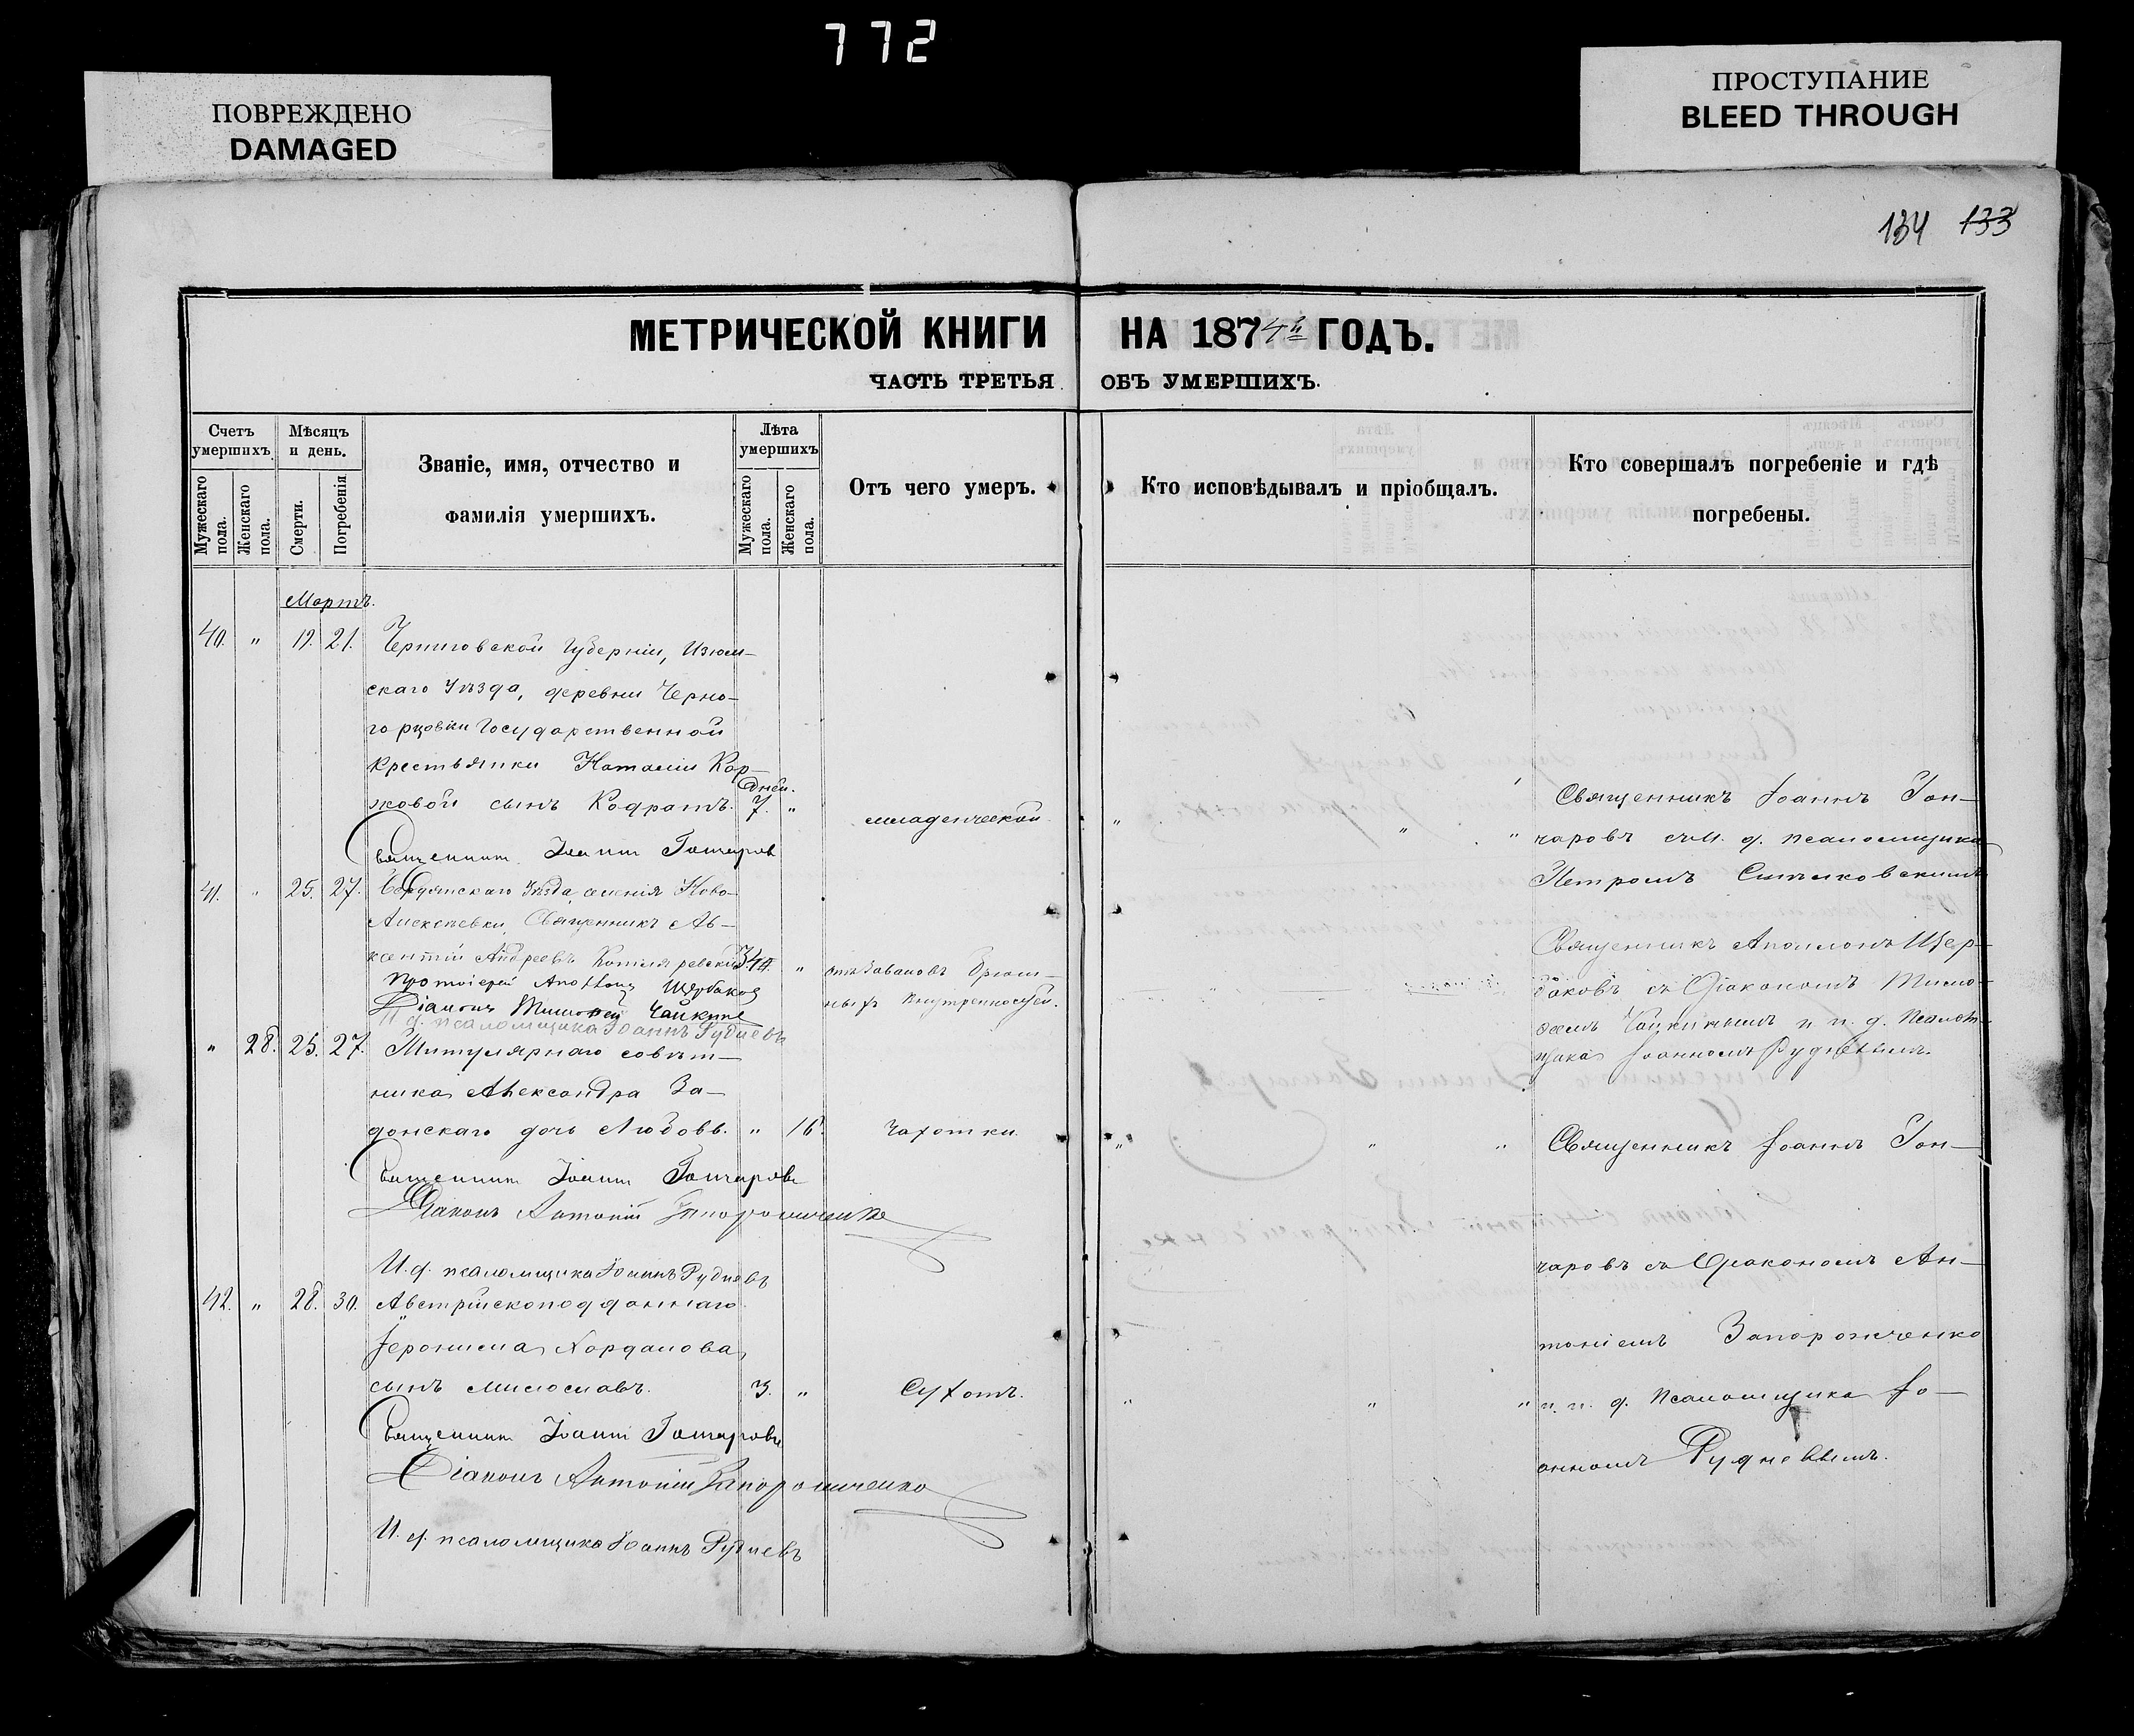 772
ПОВРЕЖДЕНО
DAMAGED
ПРОСТУПАНИЕ
BLEED THROUGH
134 133
МЕТРИЧЕСКОЙ КНИГИ НА 1874й ГОДЪ.
ЧАСТЬ ТРЕТЬЯ ОБЪ УМЕРШИХЪ.
Счетъ умершихъ.
Мѣсяцъ и день.
Званіе, имя, отчество и фамилія умершихъ.
Лѣта умершихъ
Отъ чего умеръ.
Кто исповѣдывалъ и пріобщалъ.
Кто совершалъ погребеніе и гдѣ погребены.
Мужескаго пола.
Женскаго пола.
Смерти.
Погребенія
Мужескаго пола.
Женскаго пола.
Мартъ.
40. " 19. 21. Черниговской Губерніи, Изюм-
скаго Уѣзда, деревни Черно-
Государственной
Крестьянки Наталіи Кор-
жовой сынъ Кодратъ. Дней. 7. " младенческой " " "
Священникъ Іоаннъ Гончаровъ
Священникъ Іоаннъ Гон-
чаровъ съ И. д. псаломщика
Петромъ
41. " 25. 27. Бердянскаго Уѣзда, селенія Ново-
Алексѣевки, Священникъ Ав-
ксентій Андреевъ Котляревскій "
Брюш-
ныхъ внутренностей.
Протоіерей Аполлонъ Щербаковъ
Діаконъ Тимоѳей Чайкинъ
И. д. псаломщика Іоаннъ Рудневъ
Священникъ Аполлонъ Щер-
баковъ съ Діакономъ Тимо-
ѳеемъ Чайкинымъ и и. д. псалом-
щика Іоанномъ Рудневымъ.
" 28. 25. 27. Титулярнаго совѣт-
ника Александра За-
донскаго дочь Любовь. " 16. Чахотки. " " "
Священникъ Іоаннъ Гончаровъ
Діаконъ Антоній Запорожченко
И. д. псаломщика Іоаннъ Рудневъ
Священникъ Іоаннъ Гон-
чаровъ съ Діакономъ Ан-
тоніемъ Запорожченко
и и. д. псаломщика Іо-
анномъ Рудневымъ.
42. " 28. 30. Австрійскоподданнаго
Іеронима
сынъ Милославъ. 3. " Сухотъ. " " "
Священникъ Іоаннъ Гончаровъ
Діаконъ Антоній Запорожченко
И. д. псаломщика Іоаннъ Рудневъ